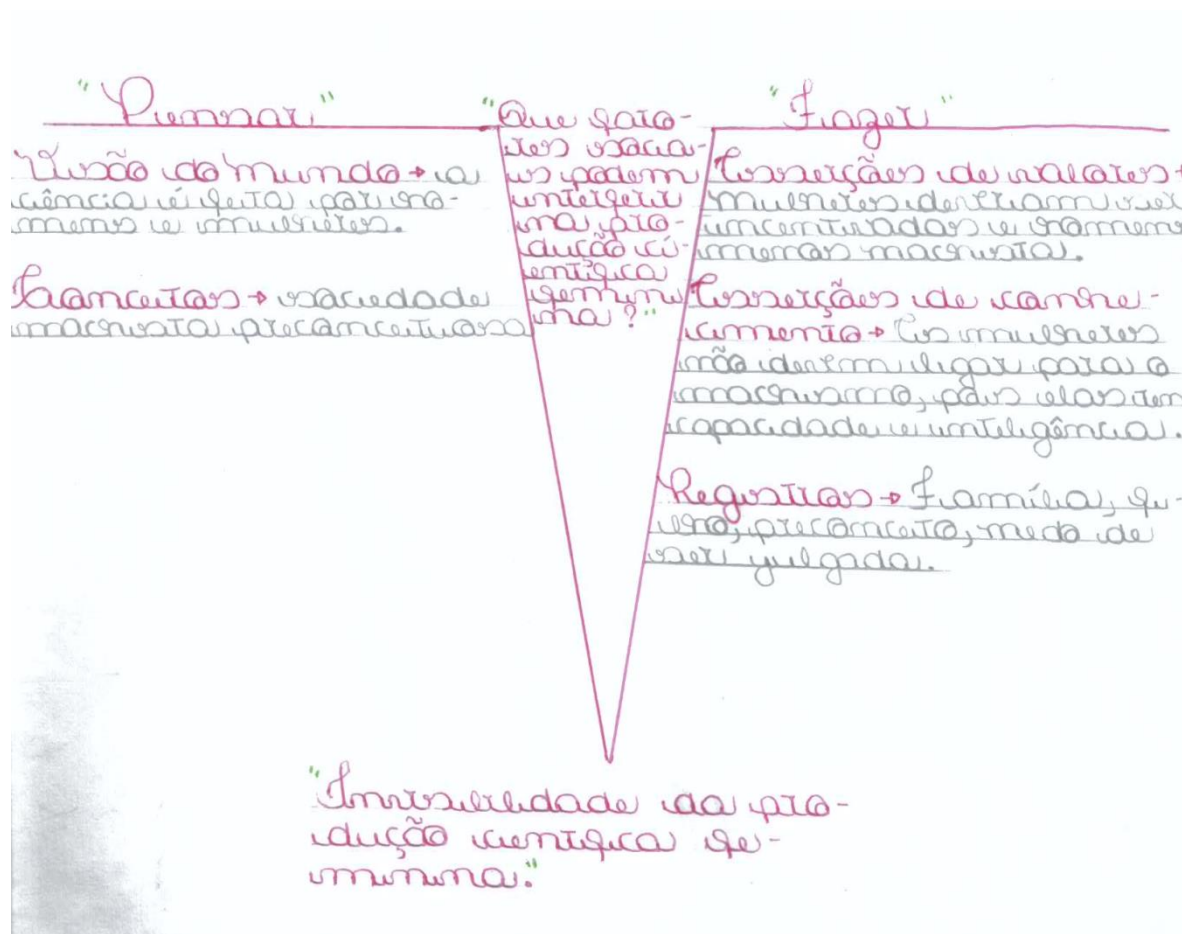 "Pensar"
Visão do mundo → a
ciência é feita por ho-
mens e mulheres.
Conceitos → sociedade
machista preconceituosa
"Que fato-
res socia-
is podem
interferir
na pro-
dução ci-
entífica
femini
na?"
"Fazer"
Asserções de valores →
mulheres deveriam ser
incentivadas e homens
menos machista.
Asserções de conhe-
cimento → As mulheres
não devem ligar para o
machismo, pois elas tem
capacidade e inteligência.
Registros → Família, fi-
lho, preconceito, medo de
ser julgada.
"Invisibilidade da pro-
dução científica fe-
minina."